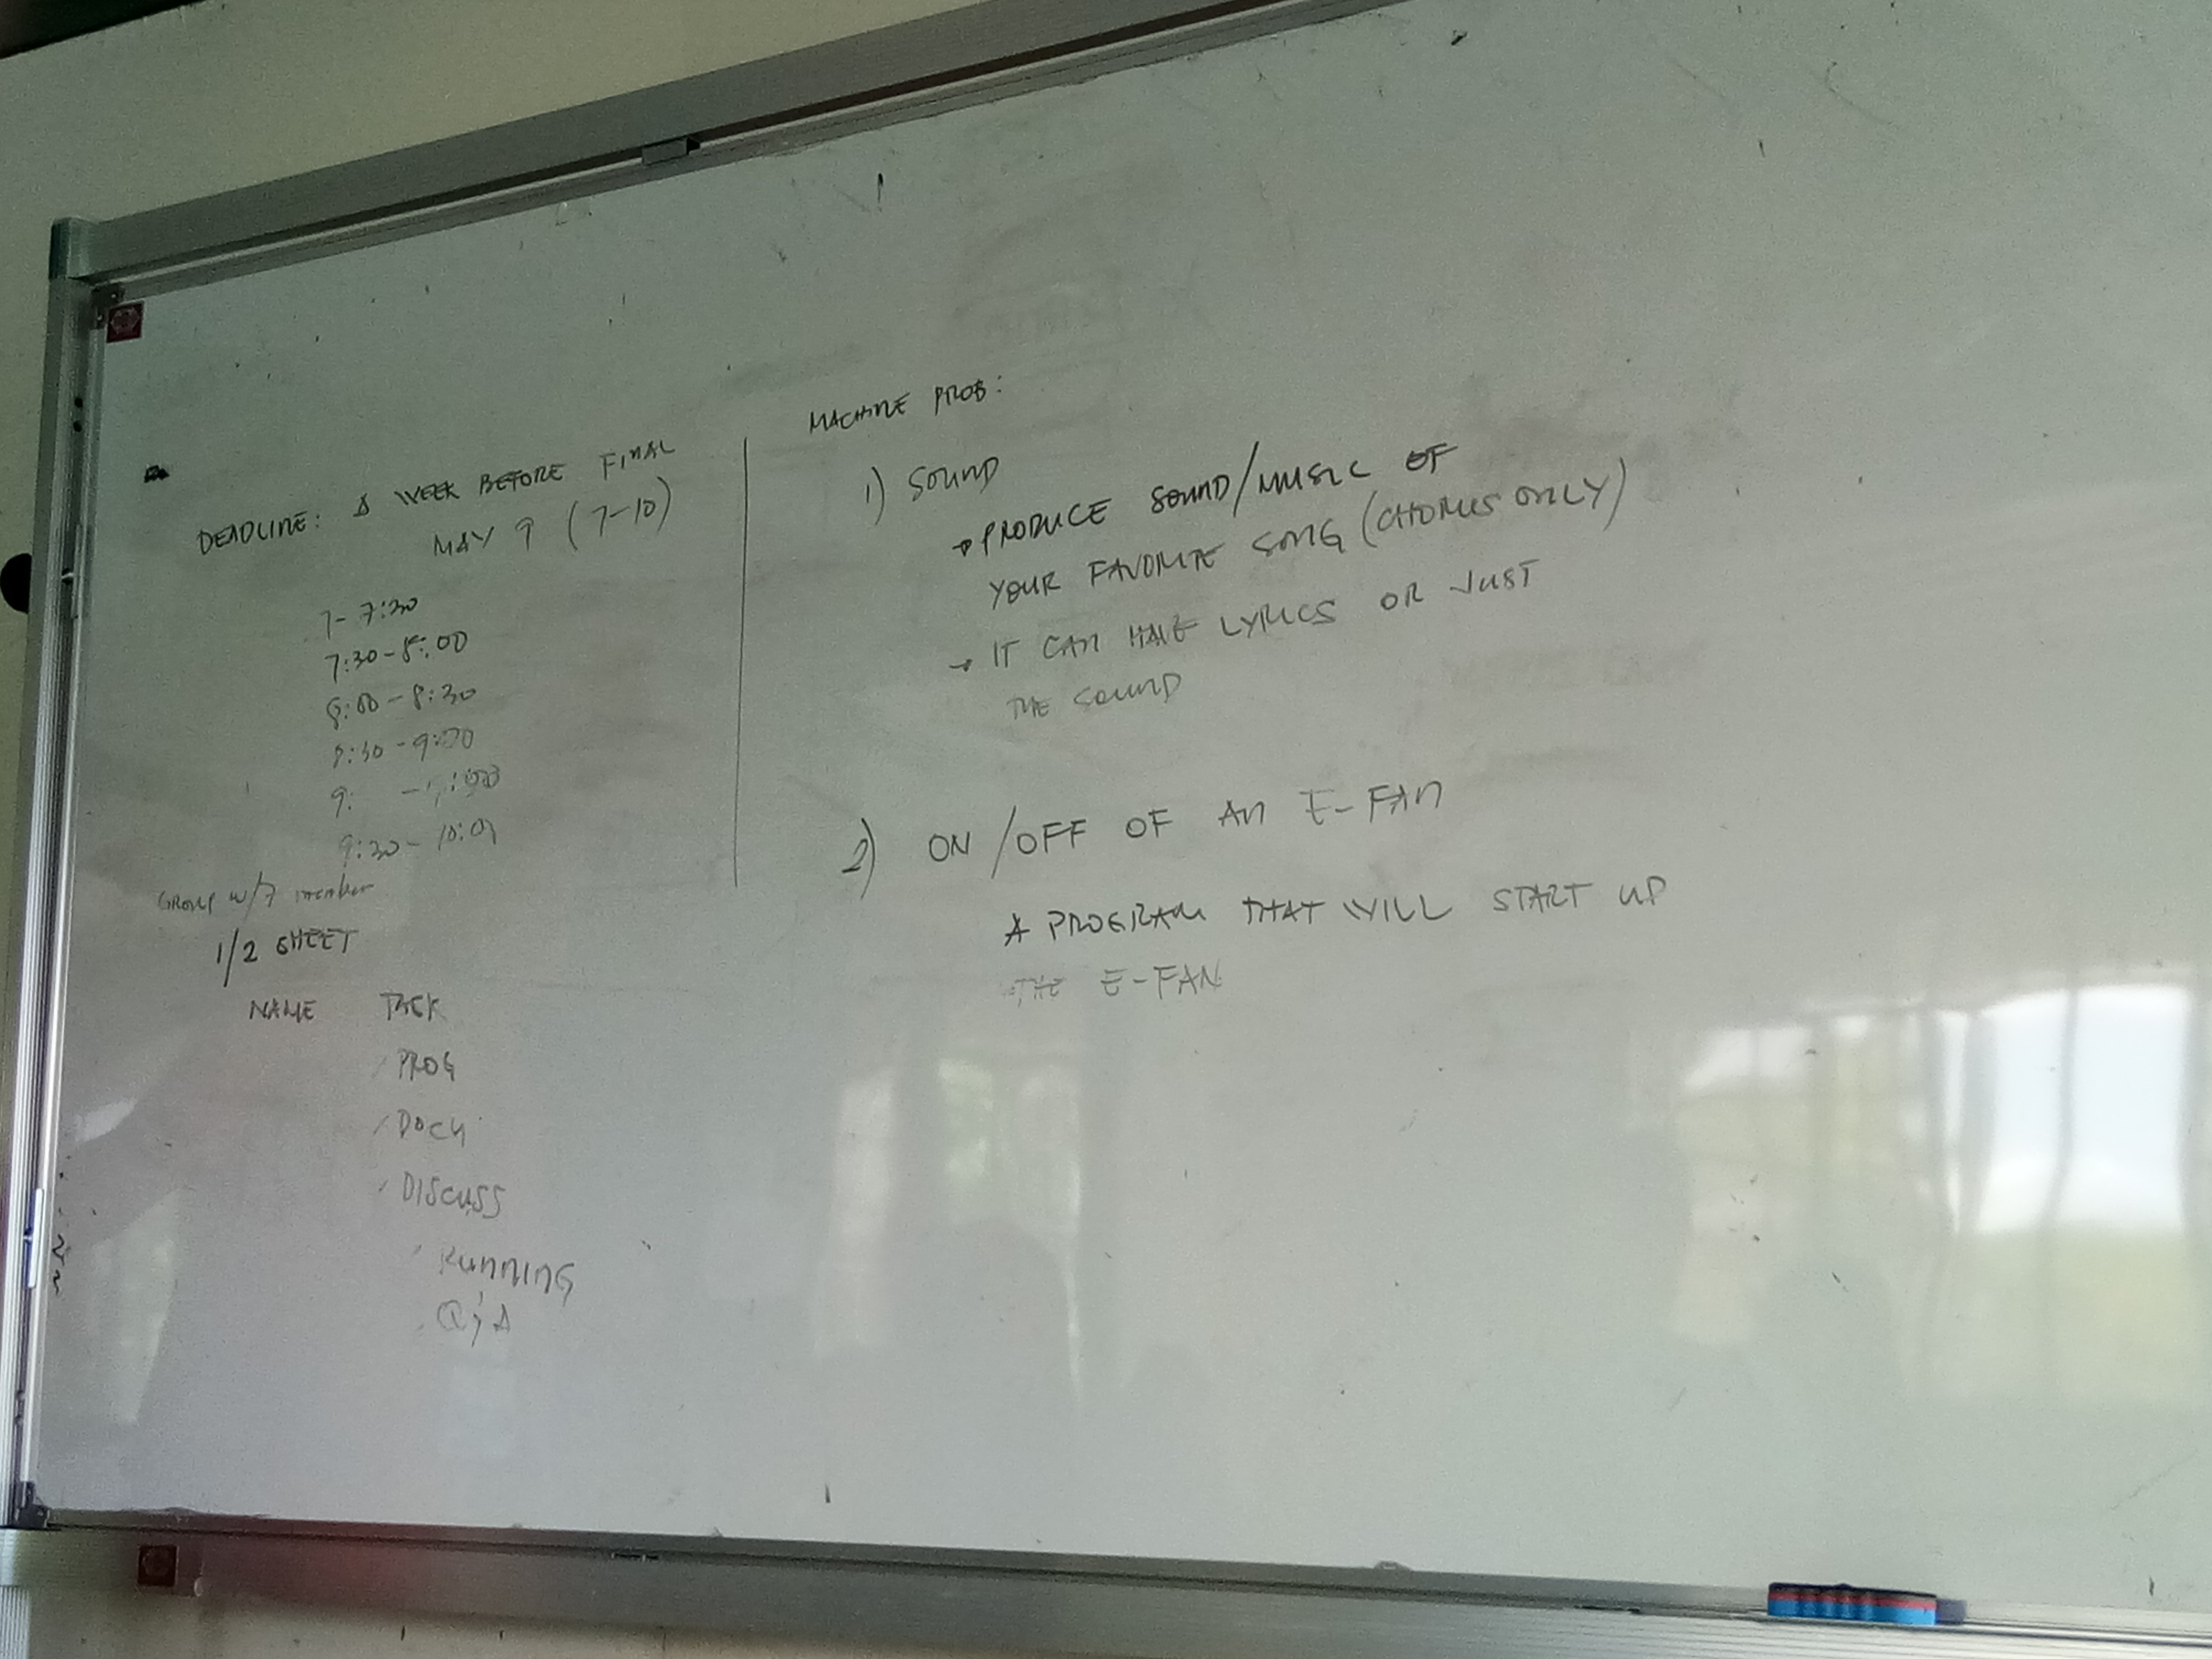 DEADLINE: A WEEK BEFORE FINAL
MAY 9 (7-10)
7-7:30
7:30-8:00
8:00-8:30
8:30-9:00
9:
9:30-10:00
GROUP w/7 member
1/2 SHEET
NAME TASK
PROG
DOCU
DISCUSS
RUNNING
Q & A
MACHINE PROB:
1) SOUND
→ PRODUCE SOUND/MUSIC OF
YOUR FAVORITE SONG (CHORUS ONLY)
→ IT CAN HAVE LYRICS OR JUST
THE SOUND
2) ON/OFF OF AN E-FAN
A PROGRAM THAT WILL START UP
THE E-FAN